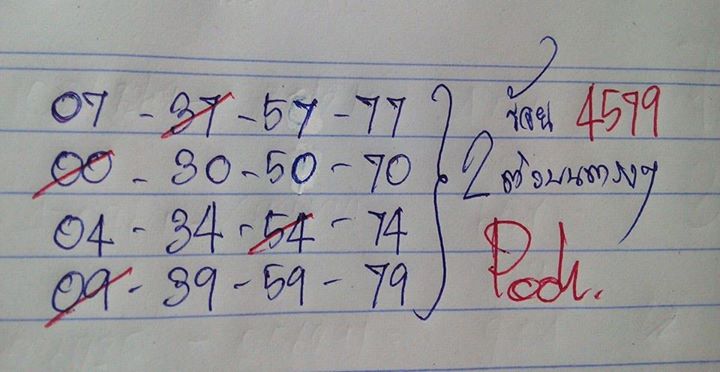 07 - 37 - 57 - 77
ร้อย 4579
00 - 30 - 50 - 70
2 ตัวบนตรงๆ
04 - 34 - 54 - 74
09 - 39 - 59 - 79